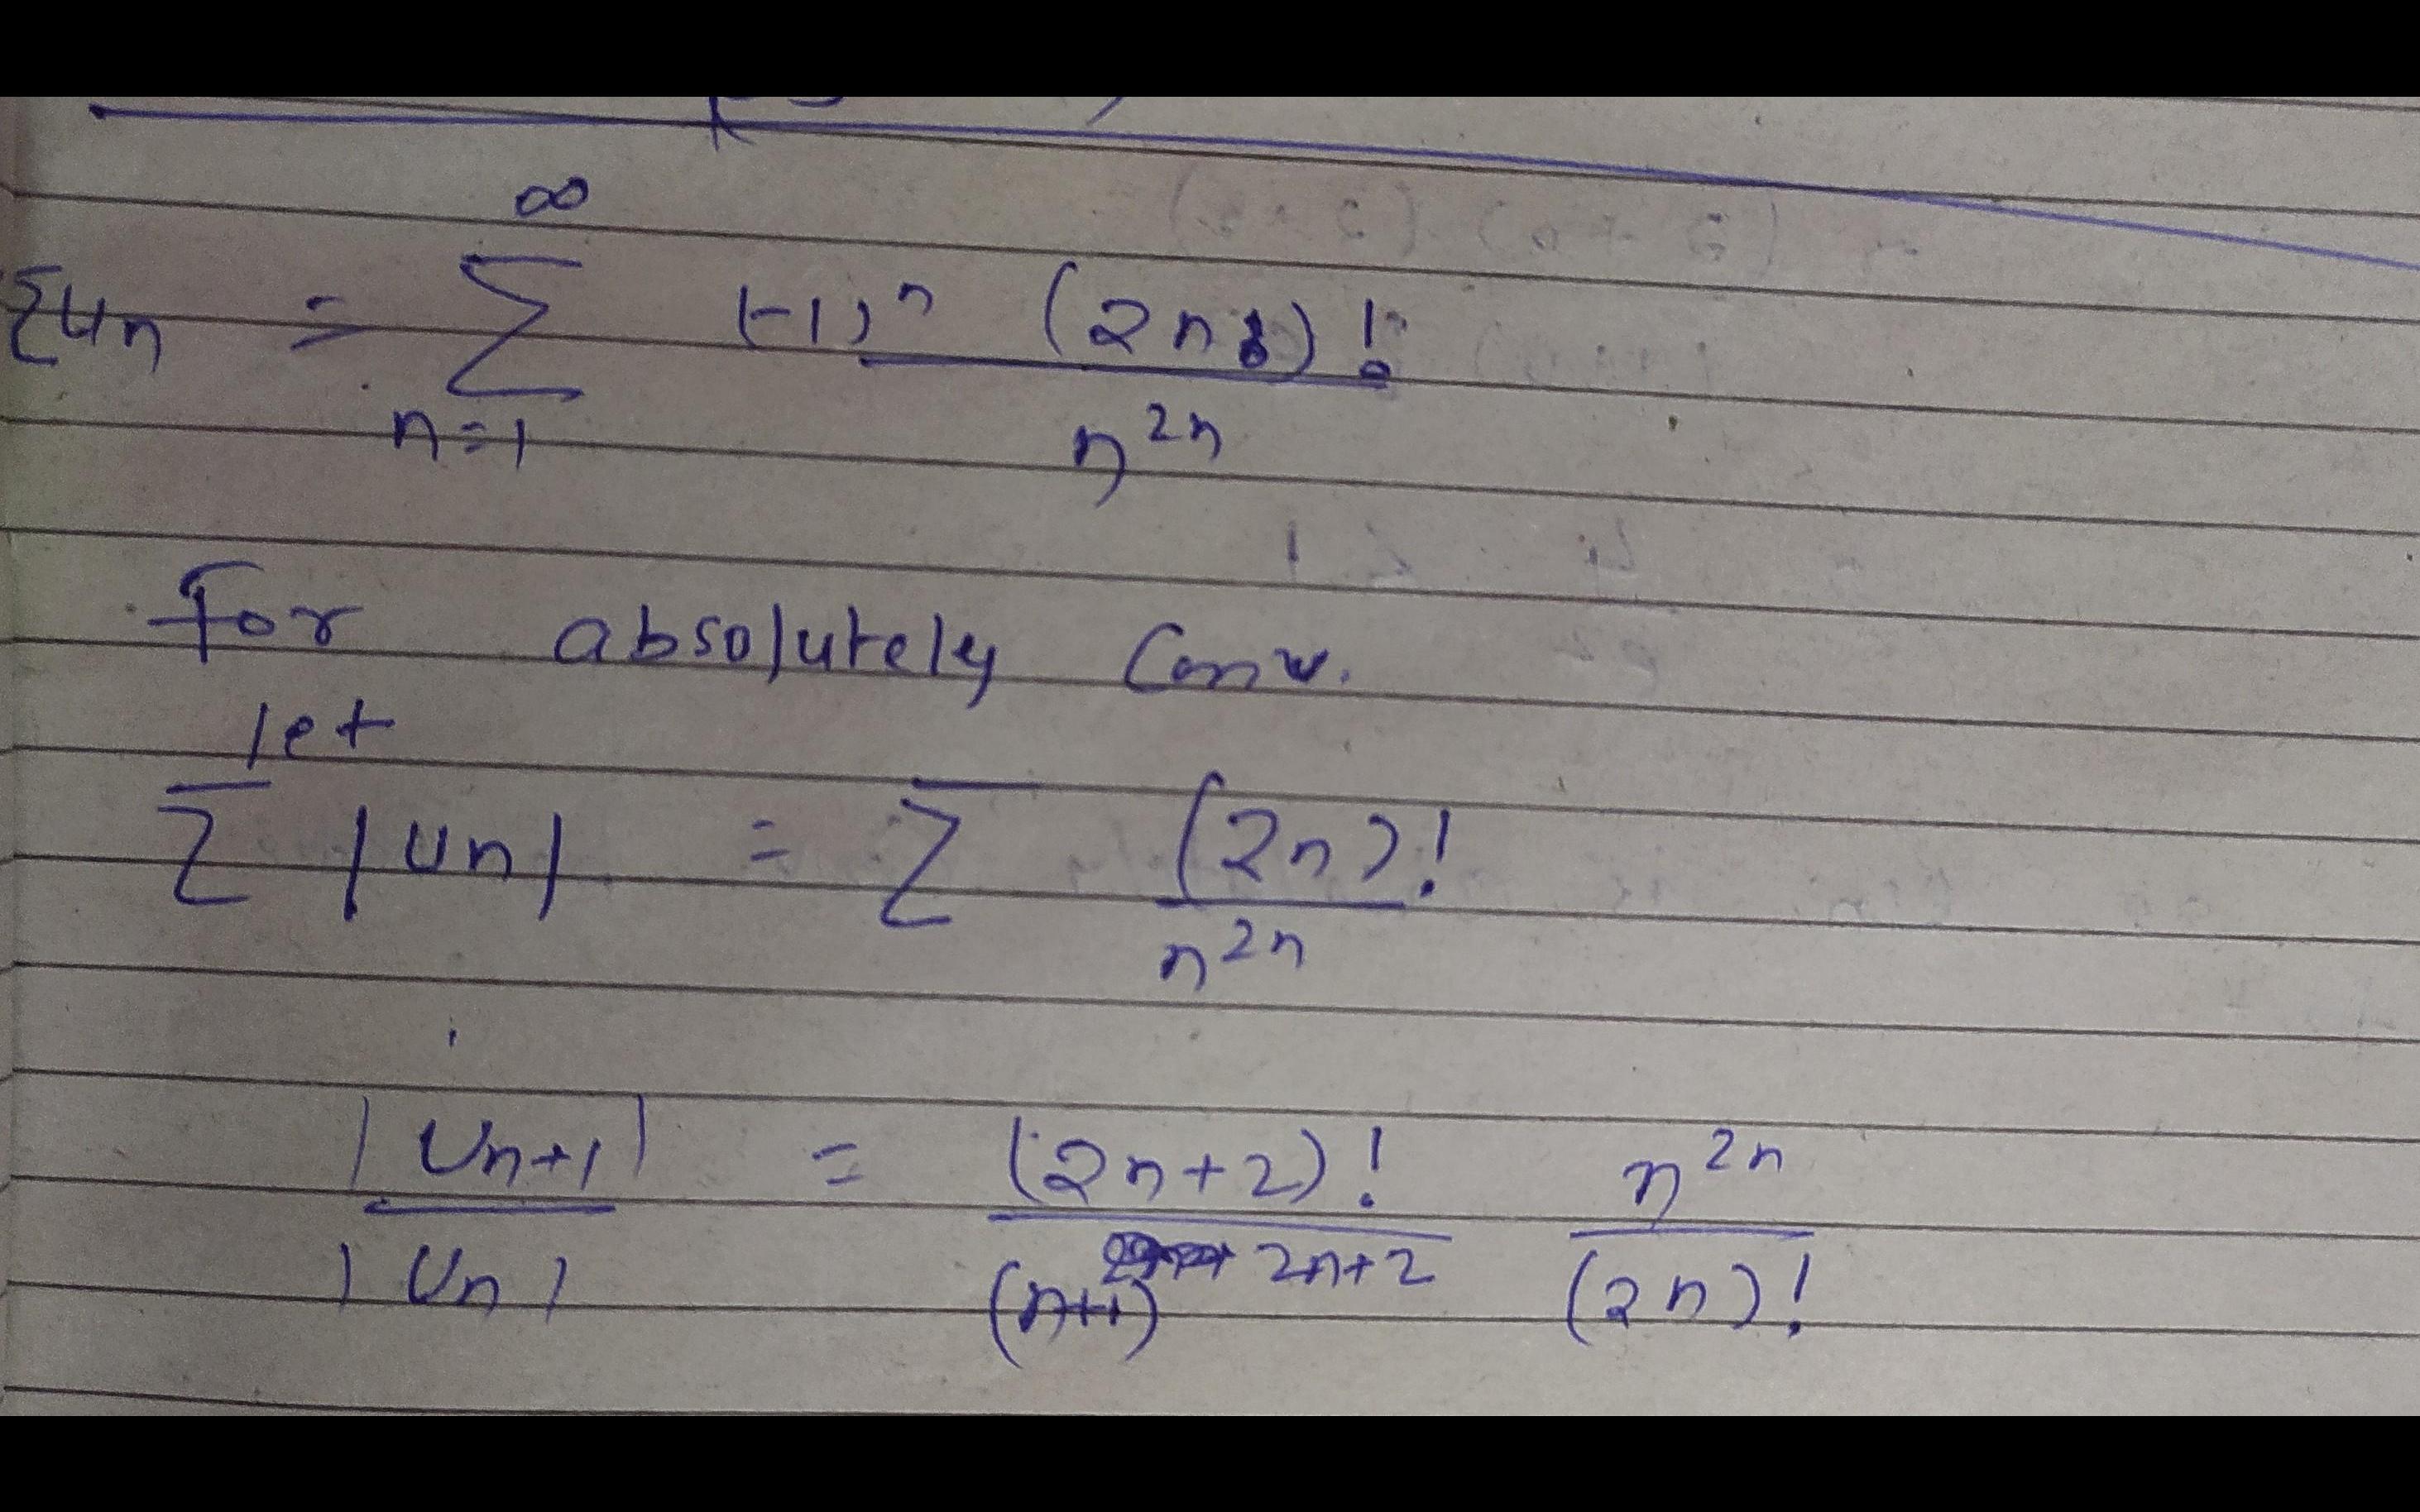 ∞
Σun = Σ (-1)ⁿ (2n)!
n=1 n²ⁿ
for absolutely Conv.
let
Σ |un| = Σ (2n)!
n²ⁿ
|Un+1| = (2n+2)! n²ⁿ
|Un| (n+1)²ⁿ⁺² (2n)!